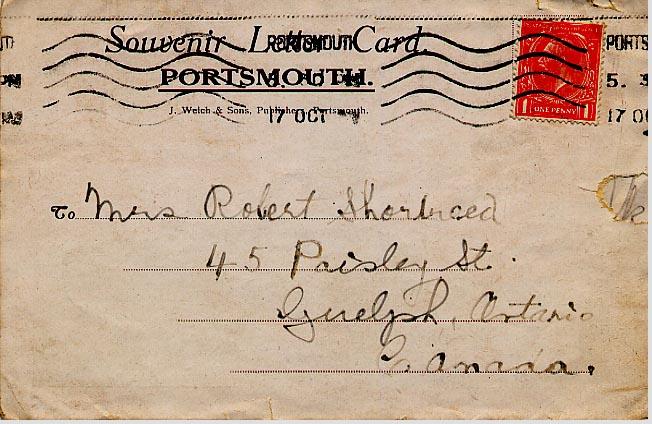 Souvenir Letter Card.
PORTSMOUTH.
J. Welch & Sons, Publishers, Portsmouth.
PORTSMOUTH
17 OCT
PORTS
5. 3
17 OC
ONE PENNY
To Mrs Robert Shortreed
45 Paisley St.
Guelph, Ontario
Canada.